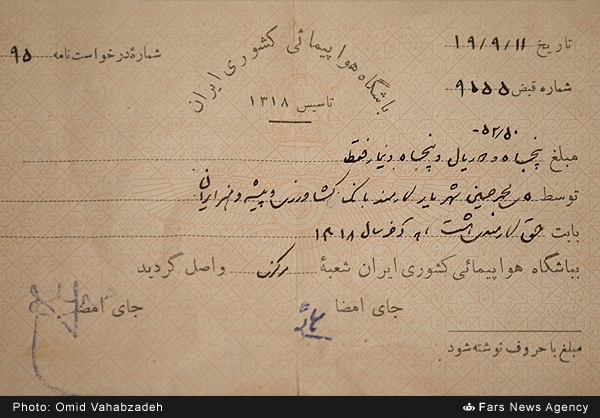 باشگاه هواپیمائی کشوری ایران
تاسیس ۱۳۱۸
تاریخ ۱۹/۹/۱۱
شمارهٔ درخواست‌نامه ۹۵
شماره قبض ۹۱۵۵
۵۲/۵۰-
مبلغ پنجاه و دو ریال و پنجاه دینار فقط
توسط محمد حسین شهریار کارمند بانک کشاورزی و پیشه و هنر ایران
بابت حق کارمندی هشت ماه آخر سال ۱۳۱۸
بباشگاه هواپیمائی کشوری ایران شعبهٔ مرکز واصل گردید
جای امضا
جای امضا
مبلغ با حروف نوشته شود
Photo: Omid Vahabzadeh
Fars News Agency